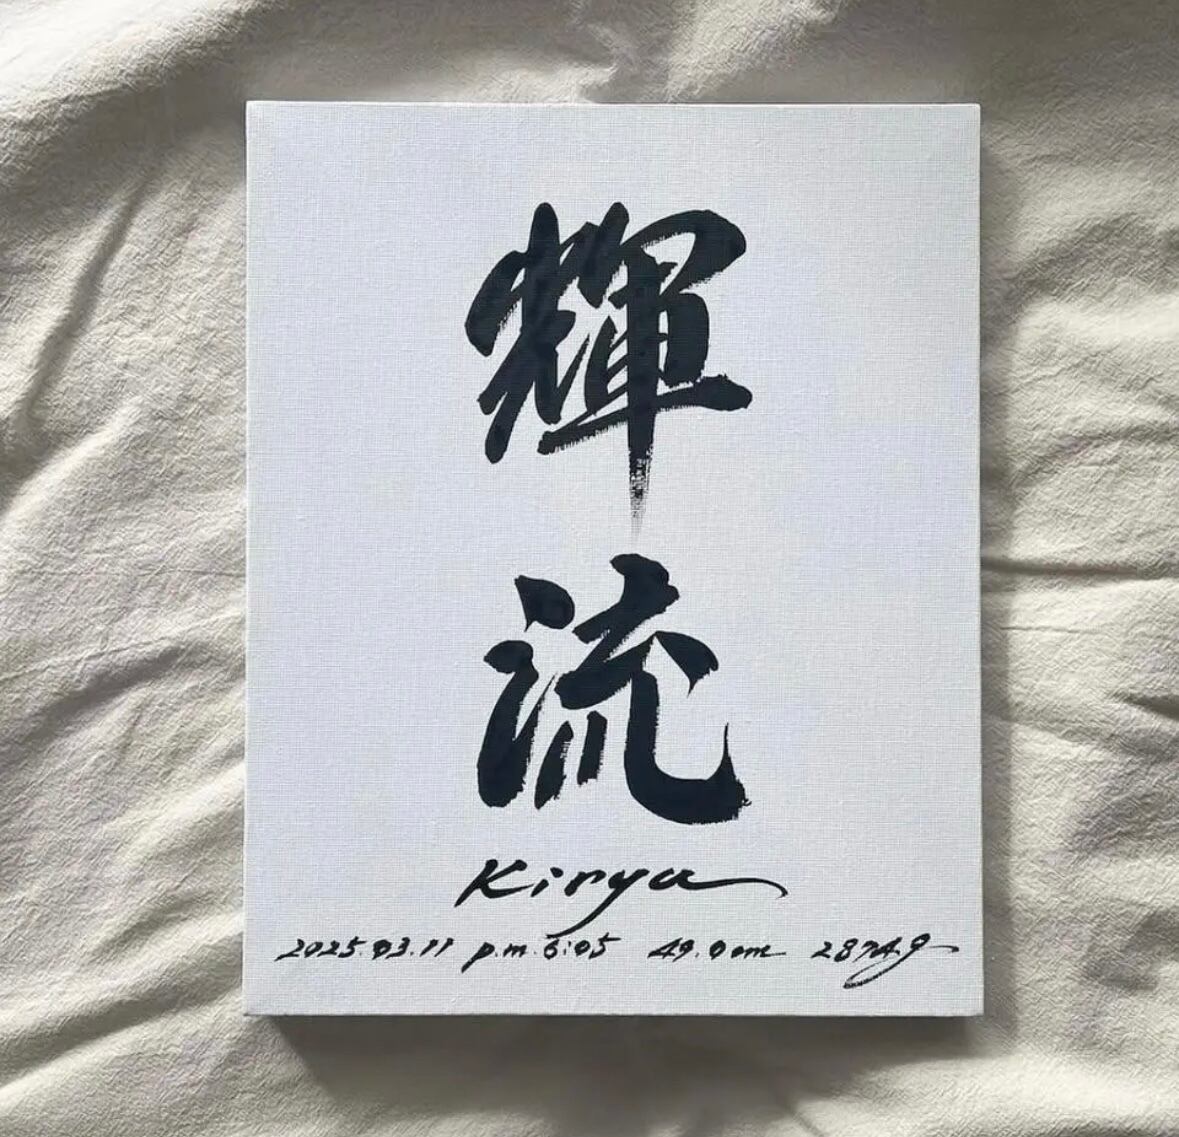 輝
流
Kirya
2025.03.11 p.m.6:05 49.0cm 2874g